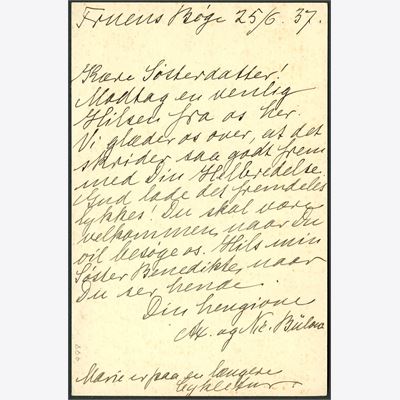 Fruens Bøge 25/6. 37.
Kære Søsterdatter!
Modtag en venlig
Hilsen fra os her.
Vi glæder os over, at det
skrider saa godt frem
med Din Helbredelse.
Gud lade det fremdeles
lykkes! Du skal være
velkommen, naar Du
vil besøge os. Hils min
Søster Benedikte, naar
Du ser hende.
Din hengivne
Ax. og Nic. Bülow
Marie er paa en længere
Cykletur.